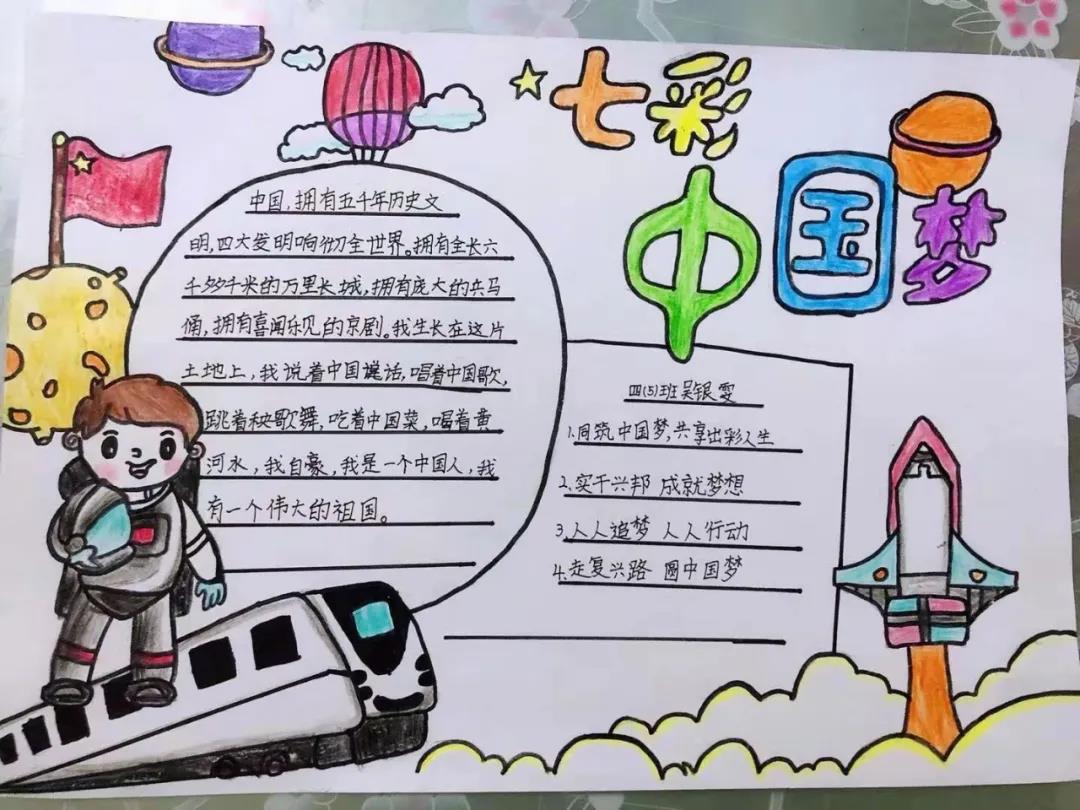 七彩
中国梦
中国,拥有五千年历史文
明,四大发明响彻全世界。拥有全长六
千多千米的万里长城,拥有庞大的兵马
俑,拥有喜闻乐见的京剧。我生长在这片
土地上,我说着中国话,唱着中国歌,
跳着秧歌舞,吃着中国菜,喝着黄
河水,我自豪,我是一个中国人,我
有一个伟大的祖国。
四(5)班吴银雯
1.同筑中国梦,共享出彩人生
2.实干兴邦 成就梦想
3.人人追梦 人人行动
4.走复兴路 圆中国梦